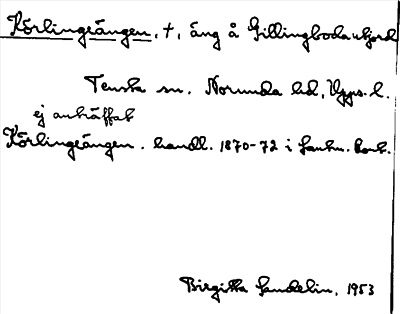 Körlingeängen, †, äng å Gillingboda utjord
Tensta sn. Norunda hd, Upps. l.
ej anträffat
Körlingeängen. handl. 1870-72 i Lantm. kont.
Birgitta Sandelin, 1953